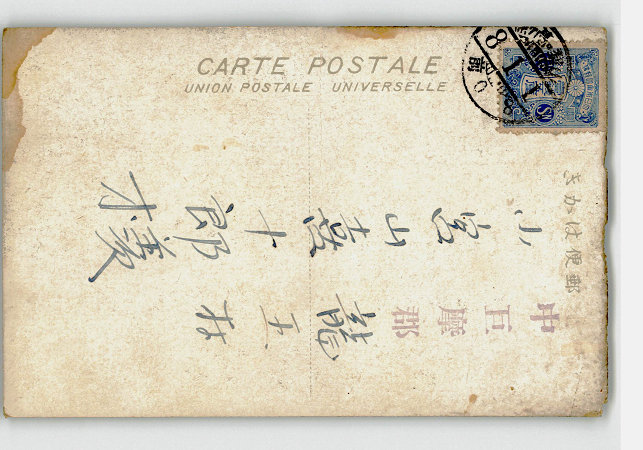 CARTE POSTALE
UNION POSTALE UNIVERSELLE
きかは便郵
中巨摩郡
龍王村
小宮山喜十郎様